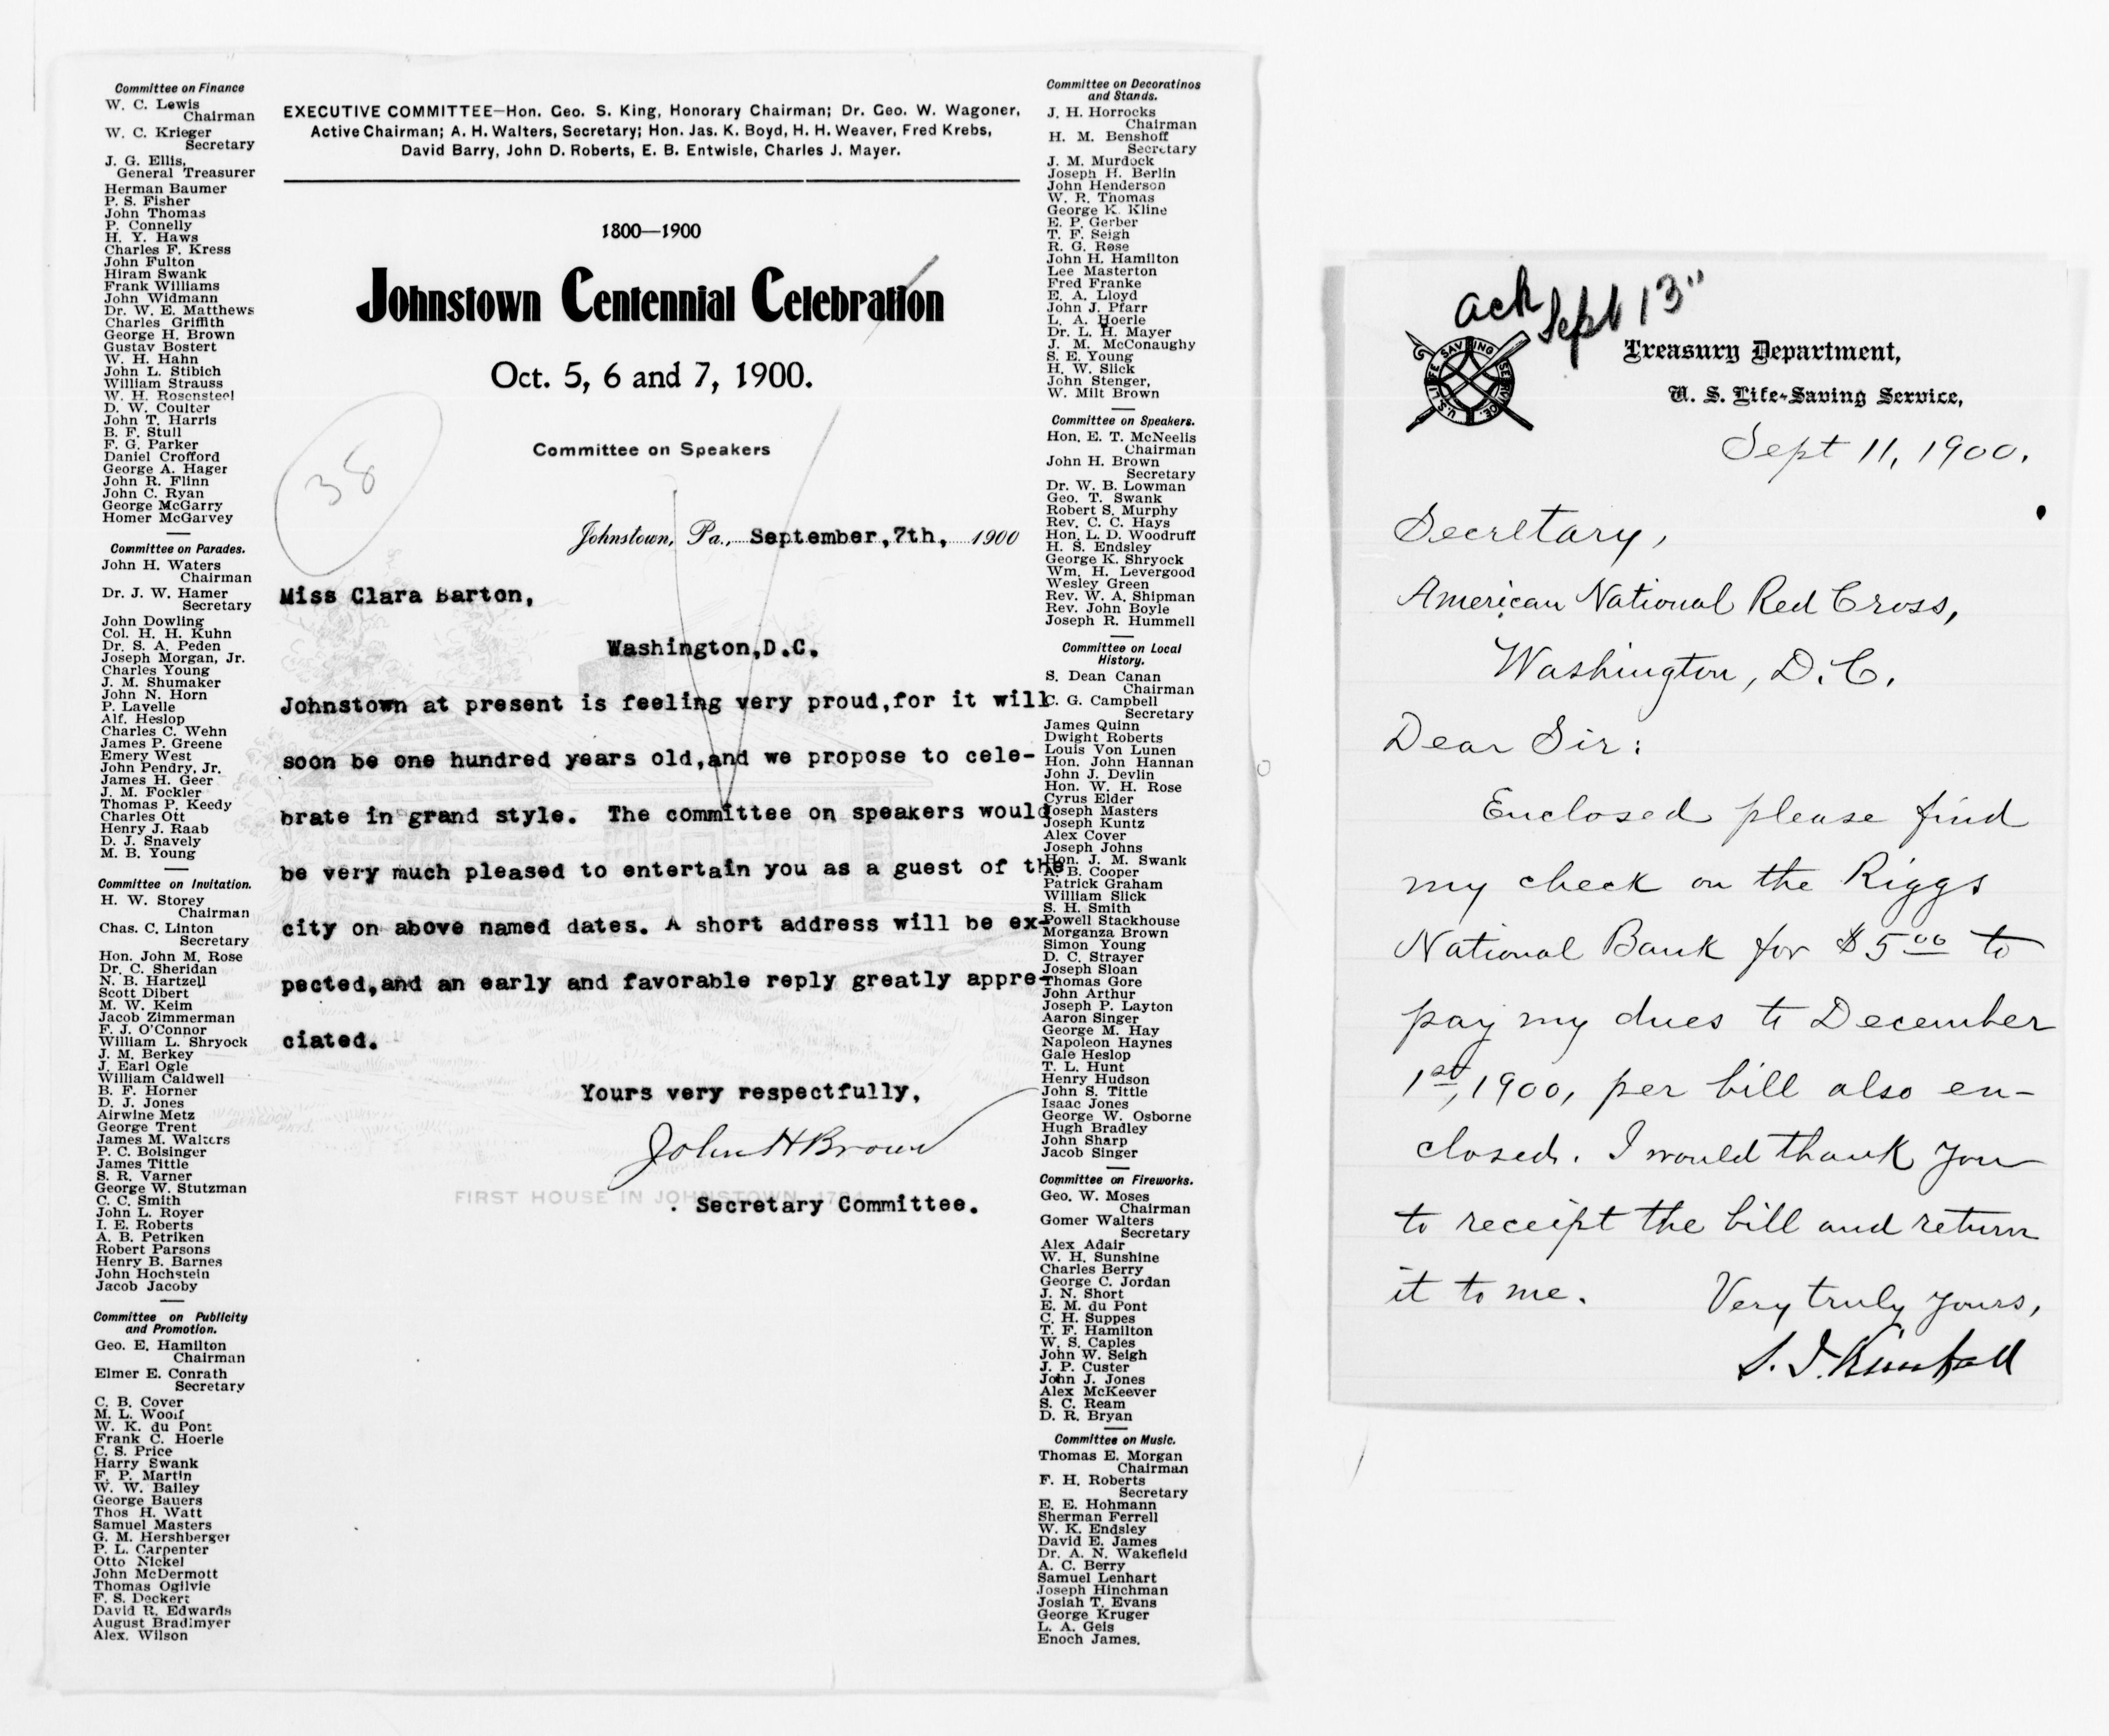 Committee on Finance
W. C. Lewis
Chairman
W. C. Krieger
Secretary
J. G. Ellis,
General Treasurer
Herman Baumer
P. S. Fisher
John Thomas
P. Connelly
H. Y. Haws
Charles F. Kress
John Fulton
Hiram Swank
Frank Williams
John Widmann
Dr. W. E. Matthews
Charles Griffith
George H. Brown
Gustav Bostert
W. H. Hahn
John L. Stibich
William Strauss
W. H. Rosensteel
D. W. Coulter
John T. Harris
B. F. Stull
F. G. Parker
Daniel Crofford
George A. Hager
John R. Flinn
John C. Ryan
George McGarry
Homer McGarvey
Committee on Parades.
John H. Waters
Chairman
Dr. J. W. Hamer
Secretary
John Dowling
Col. H. H. Kuhn
Dr. S. A. Peden
Joseph Morgan, Jr.
Charles Young
J. M. Shumaker
John N. Horn
P. Lavelle
Alf. Heslop
Charles C. Wehn
James P. Greene
Emery West
John Pendry, Jr.
James H. Geer
J. M. Fockler
Thomas P. Keedy
Charles Ott
Henry J. Raab
D. J. Snavely
M. B. Young
Committee on Invitation.
H. W. Storey
Chairman
Chas. C. Linton
Secretary
Hon. John M. Rose
Dr. C. Sheridan
N. B. Hartzell
Scott Dibert
M. W. Keim
Jacob Zimmerman
F. J. O'Connor
William L. Shryock
J. M. Berkey
J. Earl Ogle
William Caldwell
B. F. Horner
D. J. Jones
Airwine Metz
George Trent
James M. Walters
P. C. Bolsinger
James Tittle
S. R. Varner
George W. Stutzman
C. C. Smith
John L. Royer
I. E. Roberts
A. B. Petriken
Robert Parsons
Henry B. Barnes
John Hochstein
Jacob Jacoby
Committee on Publicity
and Promotion.
Geo. E. Hamilton
Chairman
Elmer E. Conrath
Secretary
C. B. Cover
M. L. Woolf
W. K. du Pont
Frank C. Hoerle
C. S. Price
Harry Swank
F. P. Martin
W. W. Bailey
George Bauers
Thos H. Watt
Samuel Masters
G. M. Hershberger
P. L. Carpenter
Otto Nickel
John McDermott
Thomas Ogilvie
F. S. Deckert
David R. Edwards
August Bradimyer
Alex. Wilson
EXECUTIVE COMMITTEE—Hon. Geo. S. King, Honorary Chairman; Dr. Geo. W. Wagoner,
Active Chairman; A. H. Walters, Secretary; Hon. Jas. K. Boyd, H. H. Weaver, Fred Krebs,
David Barry, John D. Roberts, E. B. Entwisle, Charles J. Mayer.
1800—1900
Johnstown Centennial Celebration
Oct. 5, 6 and 7, 1900.
38
Committee on Speakers
Johnstown, Pa., September,7th, 1900
Miss Clara Barton,
Washington,D.C.
Johnstown at present is feeling very proud,for it will
soon be one hundred years old,and we propose to cele-
brate in grand style. The committee on speakers would
be very much pleased to entertain you as a guest of the
city on above named dates. A short address will be ex-
pected,and an early and favorable reply greatly appre-
ciated.
Yours very respectfully,
John H Brown
FIRST HOUSE IN JOHNSTOWN
. Secretary Committee.
Committee on Decoratinos
and Stands.
J. H. Horrocks
Chairman
H. M. Benshoff
Secretary
J. M. Murdock
Joseph H. Berlin
John Henderson
W. R. Thomas
George K. Kline
E. P. Gerber
T. F. Seigh
R. G. Rose
John H. Hamilton
Lee Masterton
Fred Franke
E. A. Lloyd
John J. Pfarr
L. A. Hoerle
Dr. L. H. Mayer
J. M. McConaughy
S. E. Young
H. W. Slick
John Stenger,
W. Milt Brown
Committee on Speakers.
Hon. E. T. McNeelis
Chairman
John H. Brown
Secretary
Dr. W. B. Lowman
Geo. T. Swank
Robert S. Murphy
Rev. C. C. Hays
Hon. L. D. Woodruff
H. S. Endsley
George K. Shryock
Wm. H. Levergood
Wesley Green
Rev. W. A. Shipman
Rev. John Boyle
Joseph R. Hummell
Committee on Local
History.
S. Dean Canan
Chairman
C. G. Campbell
Secretary
James Quinn
Dwight Roberts
Louis Von Lunen
Hon. John Hannan
John J. Devlin
Hon. W. H. Rose
Cyrus Elder
Joseph Masters
Joseph Kuntz
Alex Cover
Joseph Johns
Hon. J. M. Swank
A. B. Cooper
Patrick Graham
William Slick
S. H. Smith
Powell Stackhouse
Morganza Brown
Simon Young
D. C. Strayer
Joseph Sloan
Thomas Gore
John Arthur
Joseph P. Layton
Aaron Singer
George M. Hay
Napoleon Haynes
Gale Heslop
T. L. Hunt
Henry Hudson
John S. Tittle
Isaac Jones
George W. Osborne
Hugh Bradley
John Sharp
Jacob Singer
Committee on Fireworks.
Geo. W. Moses
Chairman
Gomer Walters
Secretary
Alex Adair
W. H. Sunshine
Charles Berry
George C. Jordan
J. N. Short
E. M. du Pont
C. H. Suppes
T. F. Hamilton
W. S. Caples
John W. Seigh
J. P. Custer
John J. Jones
Alex McKeever
S. C. Ream
D. R. Bryan
Committee on Music.
Thomas E. Morgan
Chairman
F. H. Roberts
Secretary
E. E. Hohmann
Sherman Ferrell
W. K. Endsley
David E. James
Dr. A. N. Wakefield
A. C. Berry
Samuel Lenhart
Joseph Hinchman
Josiah T. Evans
George Kruger
L. A. Geis
Enoch James.
ack Sept 13"
U.S. LIFE SAVING SERVICE.
Treasury Department,
U. S. Life-Saving Service,
Sept 11, 1900.
Secretary,
American National Red Cross,
Washington, D.C.
Dear Sir:
Enclosed please find
my check on the Riggs
National Bank for $5 00 to
pay my dues to December
1st, 1900, per bill also en-
closed. I would thank you
to receipt the bill and return
it to me.
Very truly yours,
S. I. Kimball